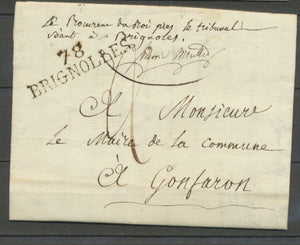 Le Procureur du Roi près le tribunal
séant à Brignoles
78
BRIGNOLLES
A Monsieur
Le Maire de la Commune
A Gonfaron